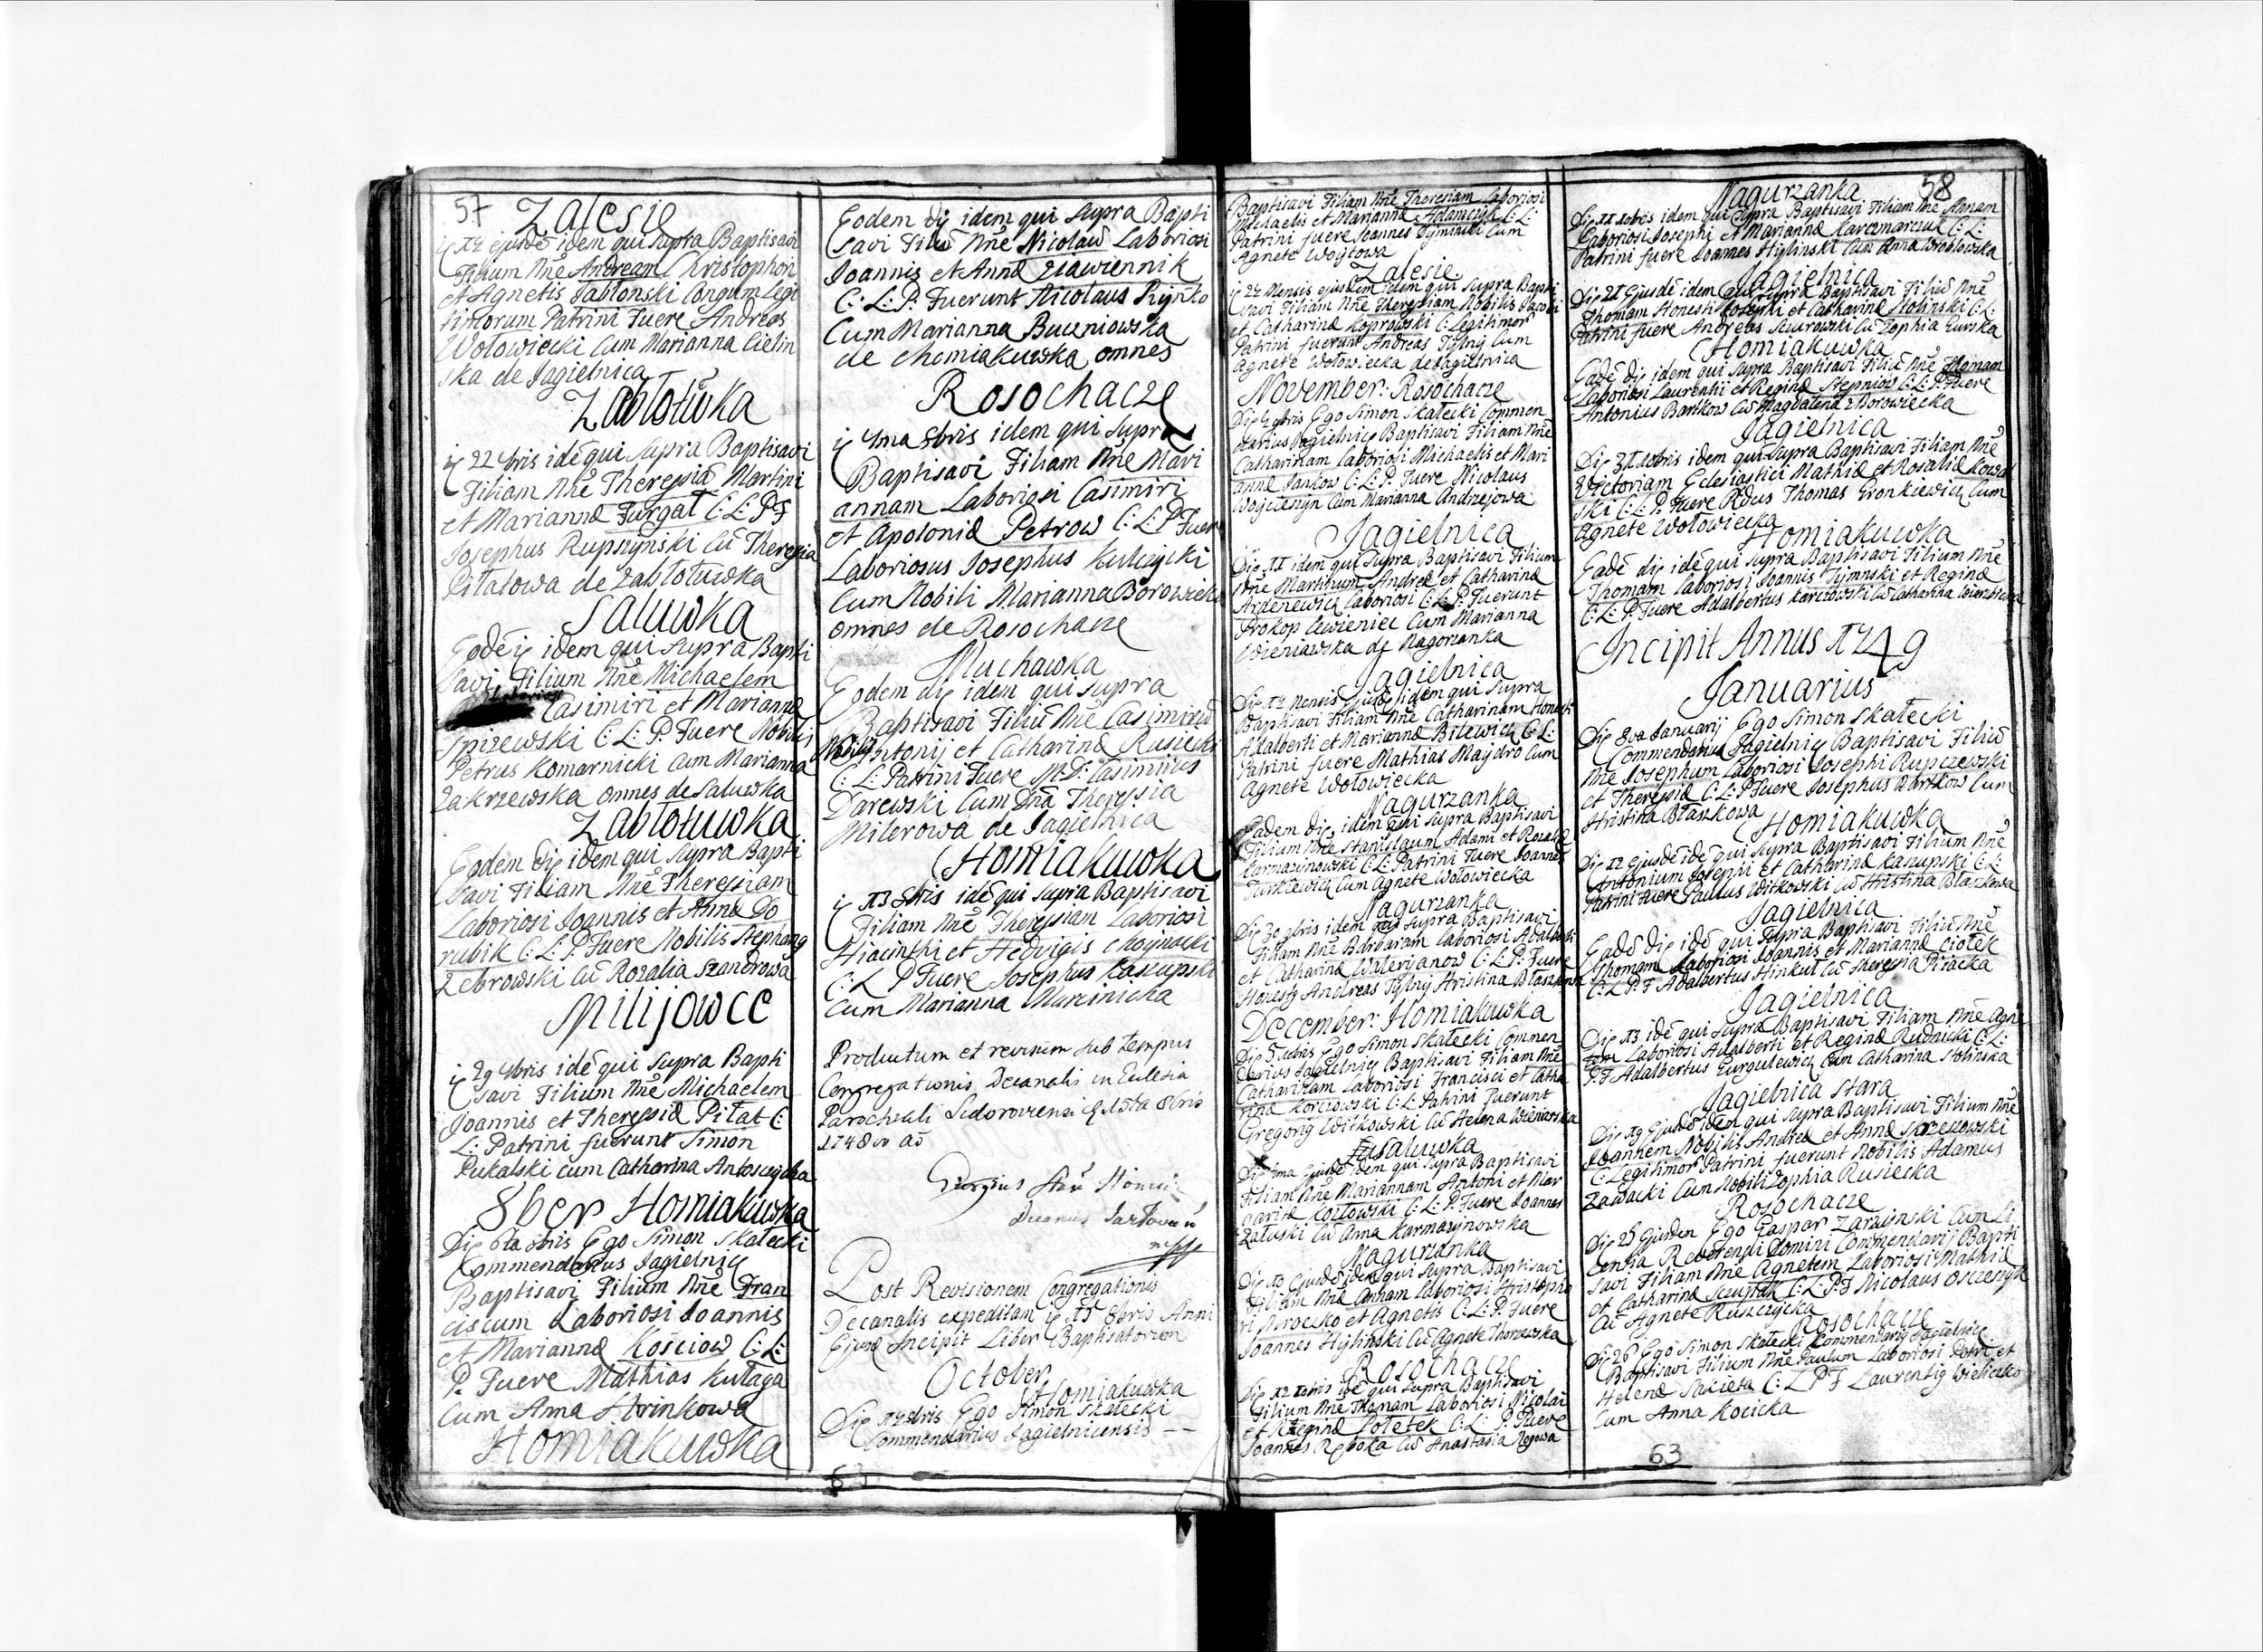 57 Zalesie
17 ejusdē idem qui supra Baptisavi
Filium Nñe Andream Christophori
et Agnetis Jabłonski Congum Legi
timorum Patrini Fuere Andreas
Wołowiecki Cum Marianna Cielin
ska de Jagielnica
Zabłotuwka
22 7bris idē qui supra Baptisavi
Filiam Nñe Theressiā Martini
et Mariannæ Furgał C: L: P: F
Josephus Rupszynski Cū Theresia
Pitalowa de Zabłotuwka
Saluwka
Eodē idem qui supra Bapti
savi Filium Nñe Michaelem
Casimiri et Mariannæ
Spirzewski C: L: P: Fuere Nobilis
Petrus Komarnicki Cum Marianna
Zakrzewska omnes de Saluwka
Zabłotuwka
Eodem die idem qui supra Bapti
savi Filiam Nñe Theressiam
Laboriosi Joannis et Annæ Do
rubik C: L: P: Fuere Nobilis Stephang
Zebrowski Cū Rozalia Szandrowa
Milijowce
29 7bris idē qui supra Bapti
savi Filium Nñe Michaelem
Joannis et Theressiæ Piłat C:
L: Patrini fuerunt Simon
Pukalski cum Catharina Antoszczycha
8ber Homiakuwka
Die 6ta 8bris Ego Simon Skałecki
Commendarius Jagielnicę
Baptisavi Filium Nñe Fran
ciscum Laboriosi Joannis
et Mariannæ Kosciow C: L:
P: Fuere Mathias Kułaga
Cum Anna Hrinkowa
Homiakuwka
Eodem die idem qui supra Bapti
savi Filiū Nñe Nicolaū Laboriosi
Joannis et Annæ Zławiennik
C: L: P: Fuerunt Nicolaus Rynko
Cum Marianna Buczniowska
de Chomiakuwka omnes
Rosochacze
7ma 8bris idem qui supra
Baptisavi Filiam Nñe Mari
annam Laboriosi Casimiri
et Apoloniæ Petrow C: L: P Fuere
Laboriosus Josephus Kulczycki
Cum Nobili Marianna Borowiecka
omnes de Rosochacze
Muchawka
Eodem die idem qui supra
Baptisavi Filiū Nñe Casimirū
Nobilis Antonij et Catharinæ Rusiecki
C: L: Patrini Fuere M: D: Casimirus
Darewski Cum Dña Theresia
Milerowa de Jagielnica
Homiakuwka
13 8bris idē qui supra Baptisavi
Filiam Nñe Theressiam Laboriosi
Hiacinthi et Hedvigis Choynacki
C: L P Fuere Josephus Kaszupski
Cum Marianna Marcinicha
Productum et revisum sub tempus
Congregationis Decanalis in Ecclesia
Parochiali Sidoroviensi 15ta 8bris
1748vo ao
Post Revisionem Congregationis
Decanalis expeditam 15 8bris Anni
Ejusd Incipit Liber Baptisatorum
October
Homiakuwka
Die 17 8bris Ego Simon Skałecki
Commendarius Jagielnicensis --
Baptisavi Filiam Nñe Theresiam Laboriosi
Michaelis et Mariannæ Adamczyk C: L:
Patrini fuere Joannes Tyminski Cum
Agnete Woytowa
Zalesie
27 Mensis ejusdem idem qui supra Bapti
savi Filiam Nñe Theressiam Nobilis Jacobi
et Catharinæ Koprowski C: Legitimor
Patrini fuerunt Andreas Tylny Cum
Agnete Wołowiecka de Jagielnica
November: Rosochacze
Die 4 9bris Ego Simon Skałecki Commen
darius Jagielnicę Baptisavi Filiam Nñe
Catharinam Laboriosi Michaelis et Mari
annæ Jankow C: L: P: Fuere Nicolaus
Woyciesyn Cum Marianna Andrzejowa
Jagielnica
Die 11 idem qui supra Baptisavi Filium
Nñe Martinum Andreæ et Catharinæ
Ardenewicz Laboriosi C: L: P: Fuerunt
Prokop Lewieniec Cum Marianna
Wieniawska de Nagorzanka
Jagielnica
Die 12 Mensis ejusdē idem qui supra
Baptisavi Filiam Nñe Catharinam Honesti
Adalberti et Mariannæ Bilewicz C: L:
Patrini fuere Mathias Maydro Cum
Agnete Wołowiecka
Nagurzanka
Eadem die idem qui supra Baptisavi
Filium Nñe Stanislaum Adami et Rozaliæ
Karmazinowski C: L: Patrini Fuere Joannes
Jurkiewicz Cum Agnete Wołowiecka
Nagurzanka
Die 30 9bris idem qui supra Baptisavi
Filiam Nñe Barbaram Laboriosi Adalberti
et Catharinæ Walerijanow C: L: P: Fuere
Honesty Andreas Tylny Hristina Błaszkowa
December: Homiakuwka
Die 5 Xbris Ego Simon Skałecki Commen
darius Jagielnicę Baptisavi Filiam Nñe
Catharinam Laboriosi Francisci et Catha
rinæ Korczowski C: L: Patrini Fuerunt
Gregorig Witkowski Cū Helena Wieniawska
Saluwka
Die 7ma Ejusdē idem qui supra Baptisavi
Filiam Nñe Mariannam Antoni et Mar
garitæ Kozłowski C: L: P: Fuere Joannes
Załuski Cū Anna Karmazynowska
Nagurzanka
Die 10 Ejusdē idem qui supra Baptisavi
Filiam Nñe Annam Laboriosi Hristopho
ri Mroczko et Agnetis C: L: P: Fuere
Joannes Hiżlinski Cū Agnete Thorzewska
Rosochacze
Die 12 Xbris idē qui supra Baptisavi
Filium Nñe Thomam Laboriosi Nicolai
et Reginæ Połetek C: L: P: Fuere
Joannes Reboka Cū Anastasia Rogowa
Nagurzanka 58
Die 11 Xbris idem qui supra Baptisavi Filiam Nñe Annam
Laboriosi Josephi et Mariannæ Karczmarczuk C: L:
Patrini fuere Joannes Hiżlinski Cum Anna Wroblowska
Jagielnica
Die 21 Ejusdē idem qui supra Baptisavi Filiū Nñe
Thomam Honesti Josephi et Catharinæ Stolinski C: L:
Patrini fuere Andreas Szurowski Cū Zophia Gurska
Homiakuwka
Eadē die idem qui supra Baptisavi Filiū Nñe Thomam
Laboriosi Laurentii et Reginæ Stepniow C: L: P: Fuere
Antonius Bartkow Cū Magdalena Zborowiecka
Jagielnica
Die 31 Xbris idem qui supra Baptisavi Filiam Nñe
Victoriam Eclesiastici Mathiæ et Rosaliæ Kowal
ski C: L: P: Fuere Rdus Thomas Gronkiewicz Cum
Agnete Wołowiecka
Homiakuwka
Eadē die idē qui supra Baptisavi Filium Nñe
Thomam Laboriosi Joannis Tymnski et Reginæ
C: L: P: Fuere Adalbertus Karczowski Cū Catharina Wierzbicka
Incipit Annus 1749
Januarius
Die 8va Januarij Ego Simon Skałecki
Commendarius Jagielnicę Baptisavi Filiū
Nñe Josephum Laboriosi Josephi Rupczewski
et Theressiæ C: L: P Fuere Josephus Bartkow Cum
Hristina Błaszkowa
Homiakuwka
Die 12 Ejusdē idē qui supra Baptisavi Filium Nñe
Antonium Josephi et Catharinæ Kaszupski C: L:
Patrini Fuere Paulus Witkowski Cū Hristina Błaszkowa
Jagielnica
Eadē Die idē qui supra Baptisavi Filiū Nñe
Thomam Laboriosi Joannis et Mariannæ Ciołek
C: L: P: F Adalbertus Hinkul Cū Theressia Piracka
Jagielnica
Die 13 idē qui supra Baptisavi Filiam Nñe Agne
tem Laboriosi Adalberti et Reginæ Rudnicki C: L:
P: F Adalbertus Gurgulewicz Cum Catharina Stolinska
Jagielnica Stara
Die 19 Ejusdē idem qui supra Baptisavi Filium Nñe
Joannem Nobilis Andreæ et Annæ
C: Legitimor Patrini fuerunt Nobilis Adamus
Zawacki Cum Nobili Zophia Rusiecka
Rosochacze
Die 25 Ejusdem Ego Gaspar Zarzinski Cum Li
centia Reverendi Domini Commendarij Bapti
savi Filiam Nñe Agnetem Laboriosi Mathiæ
et Catharinæ C: L: P: F Nicolaus Osczesyk
Cū Agnete Ruszczycka
Rosochacze
Die 26 Ego Simon Skałecki Commendarig Jagielnicę
Baptisavi Filium Nñe Paulum Laboriosi Petri et
Helenæ Sakieta C: L P F Laurentig Wieliczko
Cum Anna Kocicka
63